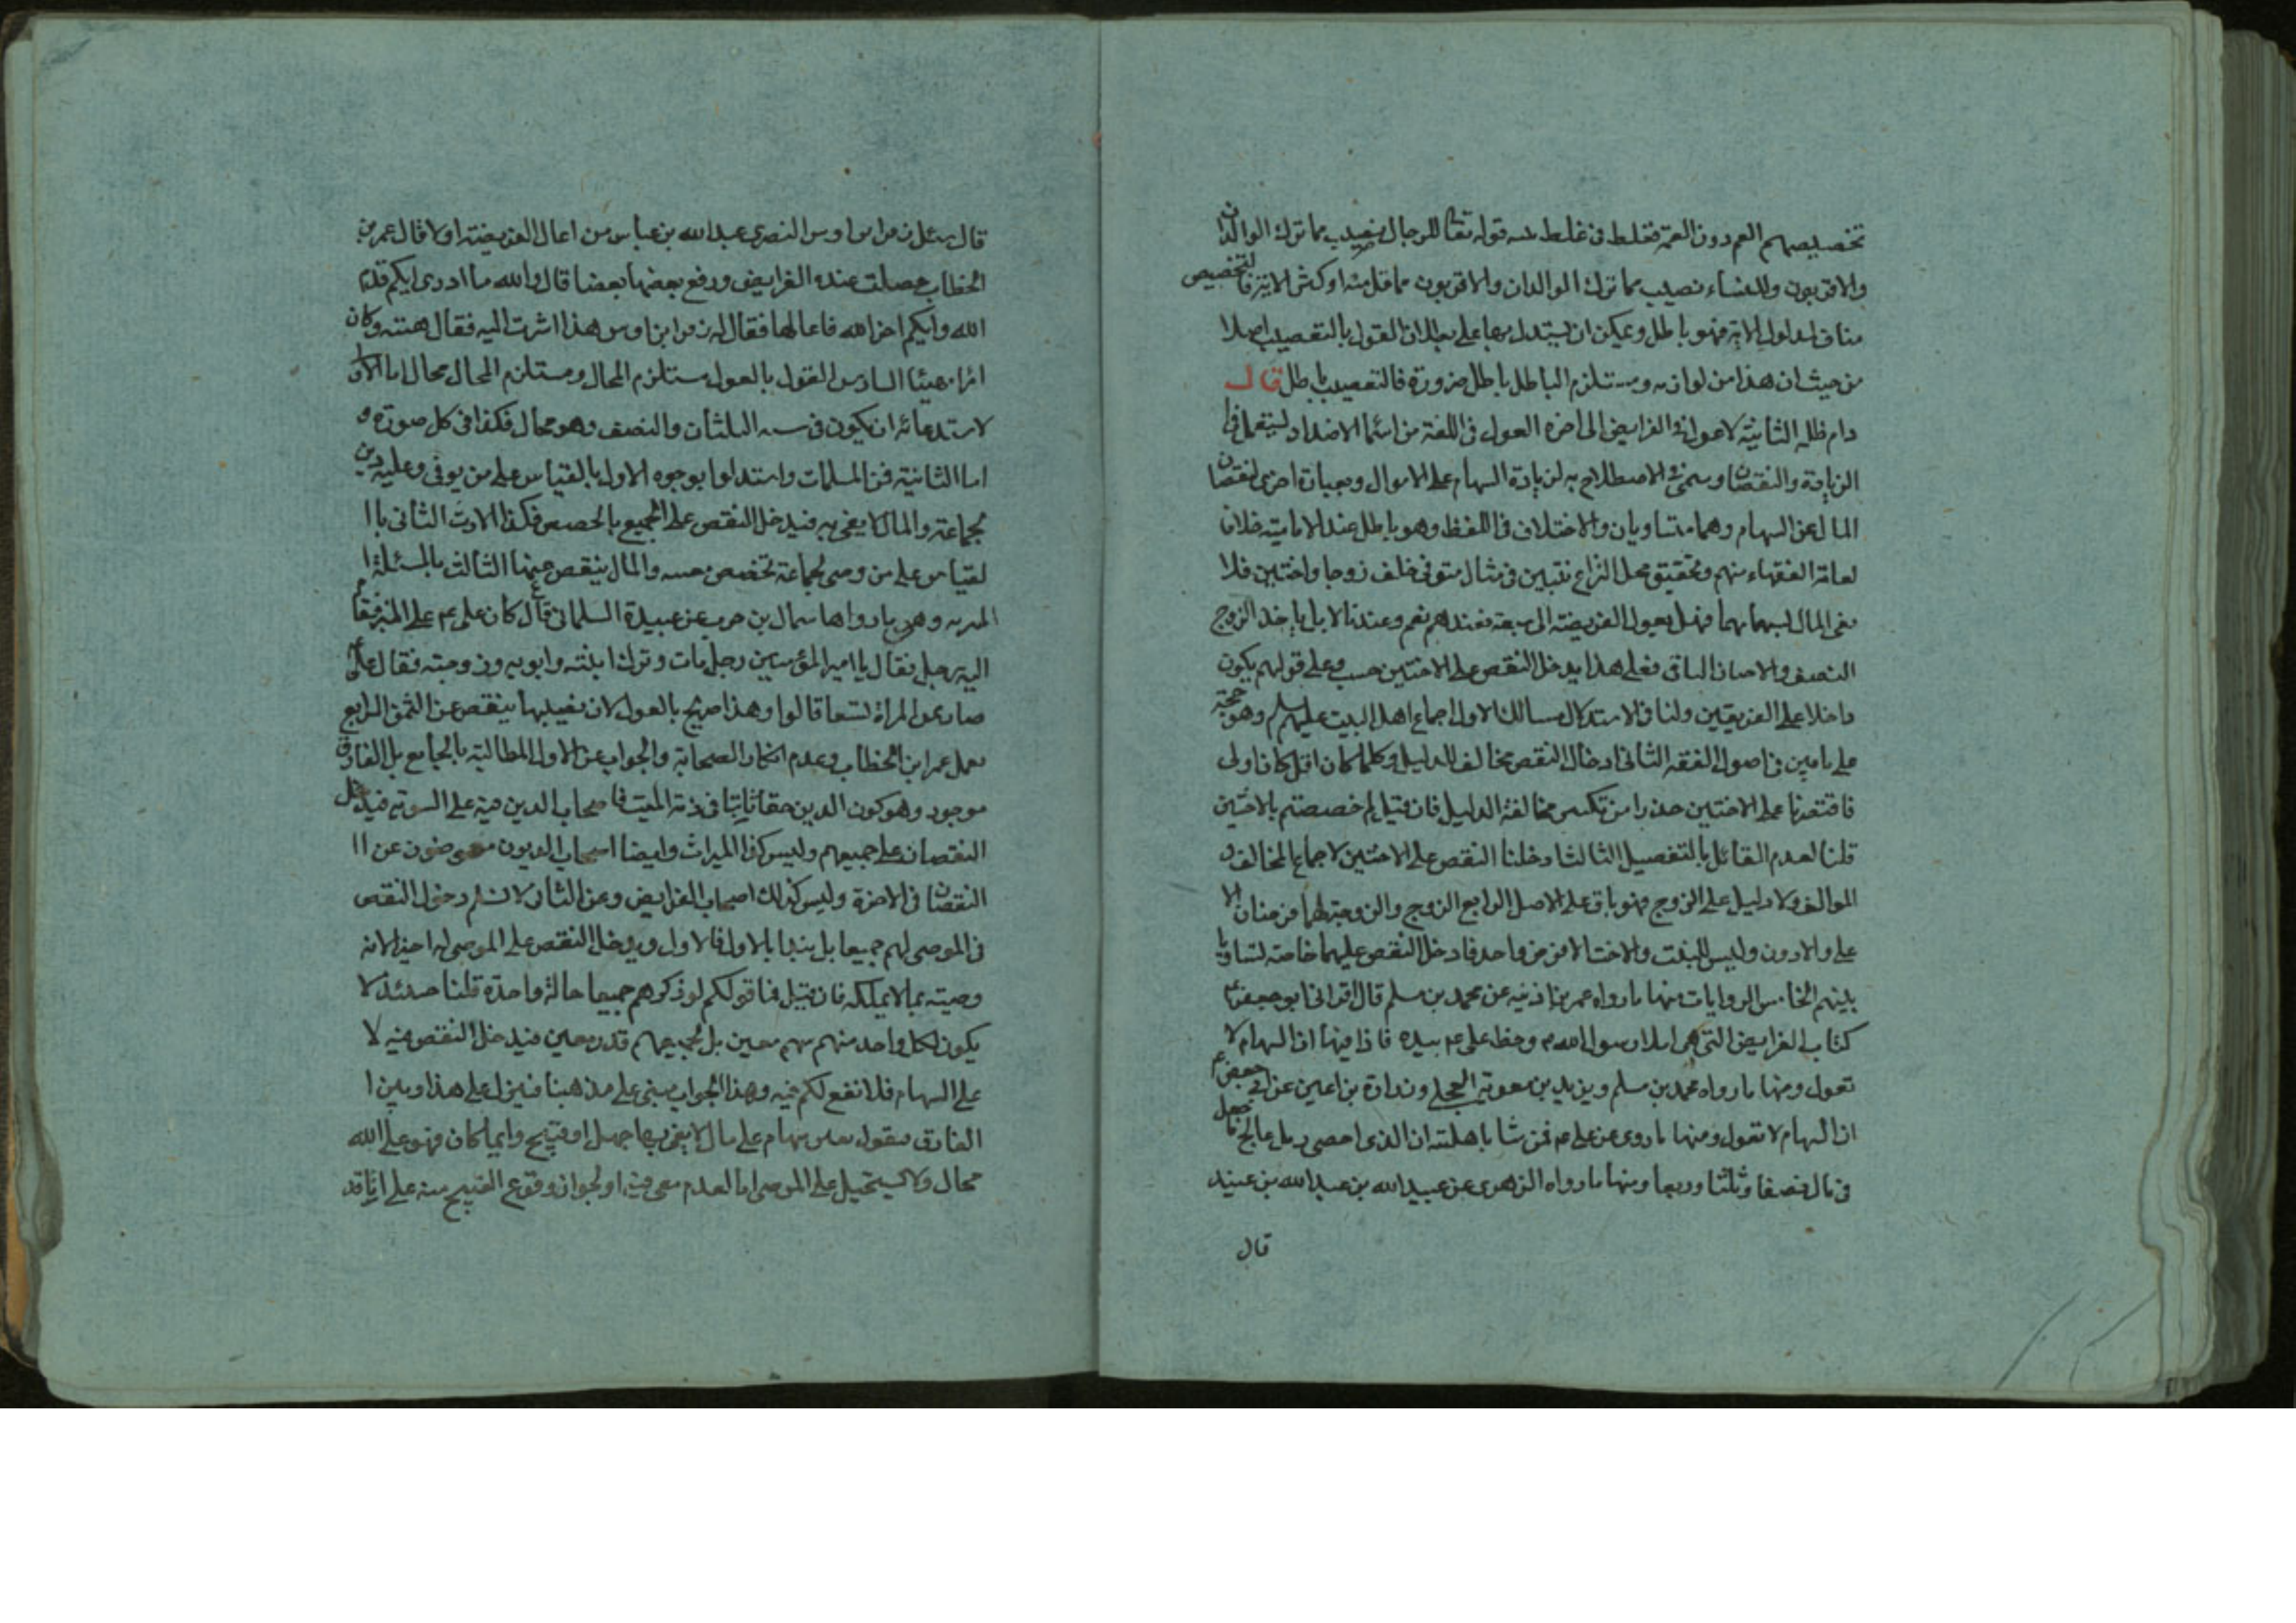 تخصيصهم العم دون العمة فغلط في غلط قوله تعا للرجال نصيب مما ترك الوالدان
والاقربون وللنساء نصيب مما ترك الوالدان والاقربون مما قل منه او كثر الاية فالتخصيص
مناف لمدلول الاية فهو باطل ويمكن ان يستدل بها على بطلان القول بالتعصيب اصلا
من حيث ان هذا من لوازمه ومستلزم الباطل باطل ضرورة فالتعصيب باطل قال
دام ظله الثانية لا عول في الفرايض الى اخره العول في اللغة من اسما الاضداد ليستعمل في
الزيادة والنقصان وسمى في الاصطلاح به لزيادة السهام على الاموال وبعبارة اخرى لنقصان
المال عن السهام وهما متساويان والاختلاف في اللفظ وهو باطل عند الامامية خلافا
لعامة الفقهاء منهم وتحقيق محل النزاع نتبين في مثال متوفى خلف زوجا واختين فلا
يفى المال لسهامهما فهل يعول الفريضة الى سبعة فعندهم نعم وعندنا لا بل ياخذ الزوج
النصف والاختان الباقى فعلى هذا يدخل النقص على الاختين حسب وعلى قولهم يكون
داخلا على الفريقين ولنا في الاستدلال مسالك الاول اجماع اهل البيت عليهم سلم وهو حجة
على ما بين في اصول الفقه الثانى ادخال النقص مخالف للدليل وكلما كان اقل كان اولى
فاقتصرنا على الاختين حذرا من تكثير مخالفة الدليل فان قيل لم خصصتم بالاختين
قلنا لعدم القائل بالتفصيل الثالث ادخلنا النقص على الاختين لاجماع المخالف و
الموالف ولا دليل على الزوج فهو باق على الاصل الرابع الزوج والزوجة لهما فرضان الا
على والادون وليس للبنت والاخت الا فرض واحد فادخل النقص عليهما خاصة لتساويا
بينهم الخامس الروايات منها ما رواه عمر بن اذينه عن محمد بن مسلم قال اقرانى ابو جعفر ع
كتاب الفرايض التى هى املاء رسول الله ص وخط على ع بيده فاذا فيها ان السهام لا
تعول ومنها ما رواه محمد بن مسلم ويزيد بن معوية العجلى وزرارة بن اعين عن ابى جعفر ع
ان السهام لا تعول ومنها ما روى عن على ع من شا باهلته ان الذى احصى رمل عالج ما جعل
في مال نصفا وثلثا وربعا ومنها ما رواه الزهرى عن عبيد الله بن عبد الله بن عتبه
قال
قال سئل زفر بن اوس النصرى عبد الله بن عباس من اعال الفريضة اولا قال عمر بن
الخطاب حصلت عنده الفرايض ودفع بعضها بعضا قال والله ما ادرى ايكم قدم
الله وايكم اخر الله فاعالها فقال له زفر ابن اوس هذا اشرت اليه فقال هبته وكان
امرا مهيبا السادس القول بالعول مستلزم المحال ومستلزم المحال محال اما الاولى
لاستدعائه ان يكون في سته الثلثان والنصف وهو محال فكذا في كل صورة و
اما الثانية فمن المسلمات واستدلوا بوجوه الاول بالقياس على من يوفى وعليه دين
لجماعة والمال لا يفى به فيدخل النقص على الجميع بالحصص فكذا الارث الثانى با
لقياس على من وصى لجماعة تخصص والمال ينقص عنها الثالث بالمسئلة ا
لمنبريه وهى ما رواها سماك بن حرب عن عبيدة السلمانى قال كان على ع على المنبر فقام
اليه رجل فقال يا امير المؤمنين رجل مات وترك ابنته وابويه وزوجته فقال على ع
صار ثمن المراة تسعا قالوا وهذا صريح بالعول لان نصيبها ينقص عن الثمن الرابع
بعمل عمر ابن الخطاب وعدم انكار الصحابة والجواب عن الاول المطالبة بالجامع بل الفارق
موجود وهو كون الدين حقا ثابتا في ذمة الميت فاصحاب الدين فيه على السوية فيدخل
النقصان على جميعهم وليس كذا الميراث وايضا اصحاب الديون معوضون عن ا
النقصان في الاخرة وليس كذلك اصحاب الفرايض وعن الثانى لا نسلم دخول النقص
في الموصى لهم جميعا بل يبدا بالاول فالاول ويدخل النقص على الموصى له اخيرا لانه
وصيته بما لا يملكه فان قيل فما قولكم لو ذكرهم جميعا حالة واحدة قلنا حينئذ لا
يكون لكل واحد منهم سهم معين بل لجميعهم قدر معين فيدخل النقص فيه لا
على السهام فلا نفع لكم فيه وهذا الجواب مبنى على مذهبنا فنيزل على هذا وبين ا
لفارق فنقول تعيين سهام على مال لا يفى بها جهل او قبيح وايما كان فهو على الله
محال ولا يستحيل على الموصى اما لعدم معرفته او لجواز وقوع القبيح منه على انا قد